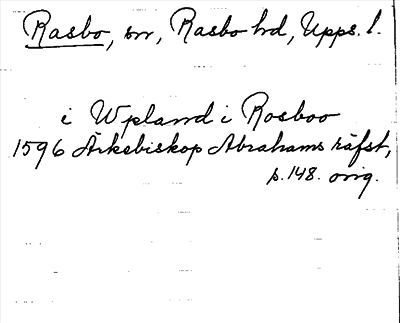 Rasbo, sn, Rasbo hd, Upps. l.
i Wpland i Rosboo
1596 Ärkebiskop Abrahams räfst,
p. 148. orig.